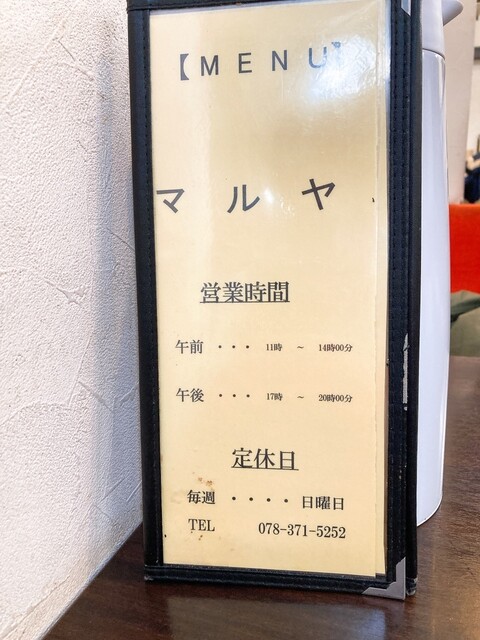 【MENU】
マルヤ
営業時間
午前 ・・・ 11時 ～ 14時00分
午後 ・・・ 17時 ～ 20時00分
定休日
毎週 ・・・・ 日曜日
TEL 078-371-5252